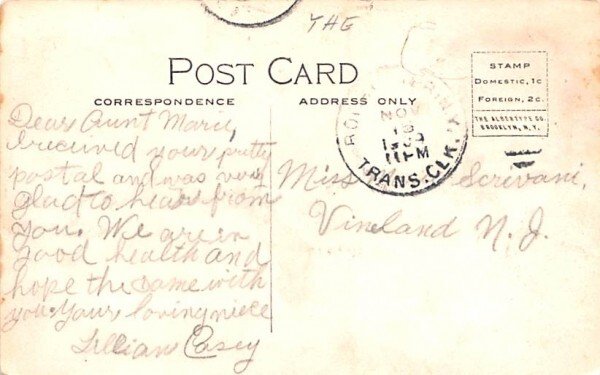 THE
POST CARD
CORRESPONDENCE
ADDRESS ONLY
STAMP
DOMESTIC, 1c
FOREIGN, 2c.
THE ALBERTYPE CO.
BROOKLYN, N.Y.
NOV
11 PM
TRANS. CLK.
Dear Aunt Marie,
I received your pretty
postal and was very
glad to hear from
you. We are in
good health and
hope the same with
you. Your loving niece
Lillian Casey
Miss Scrivani,
Vineland N. J.